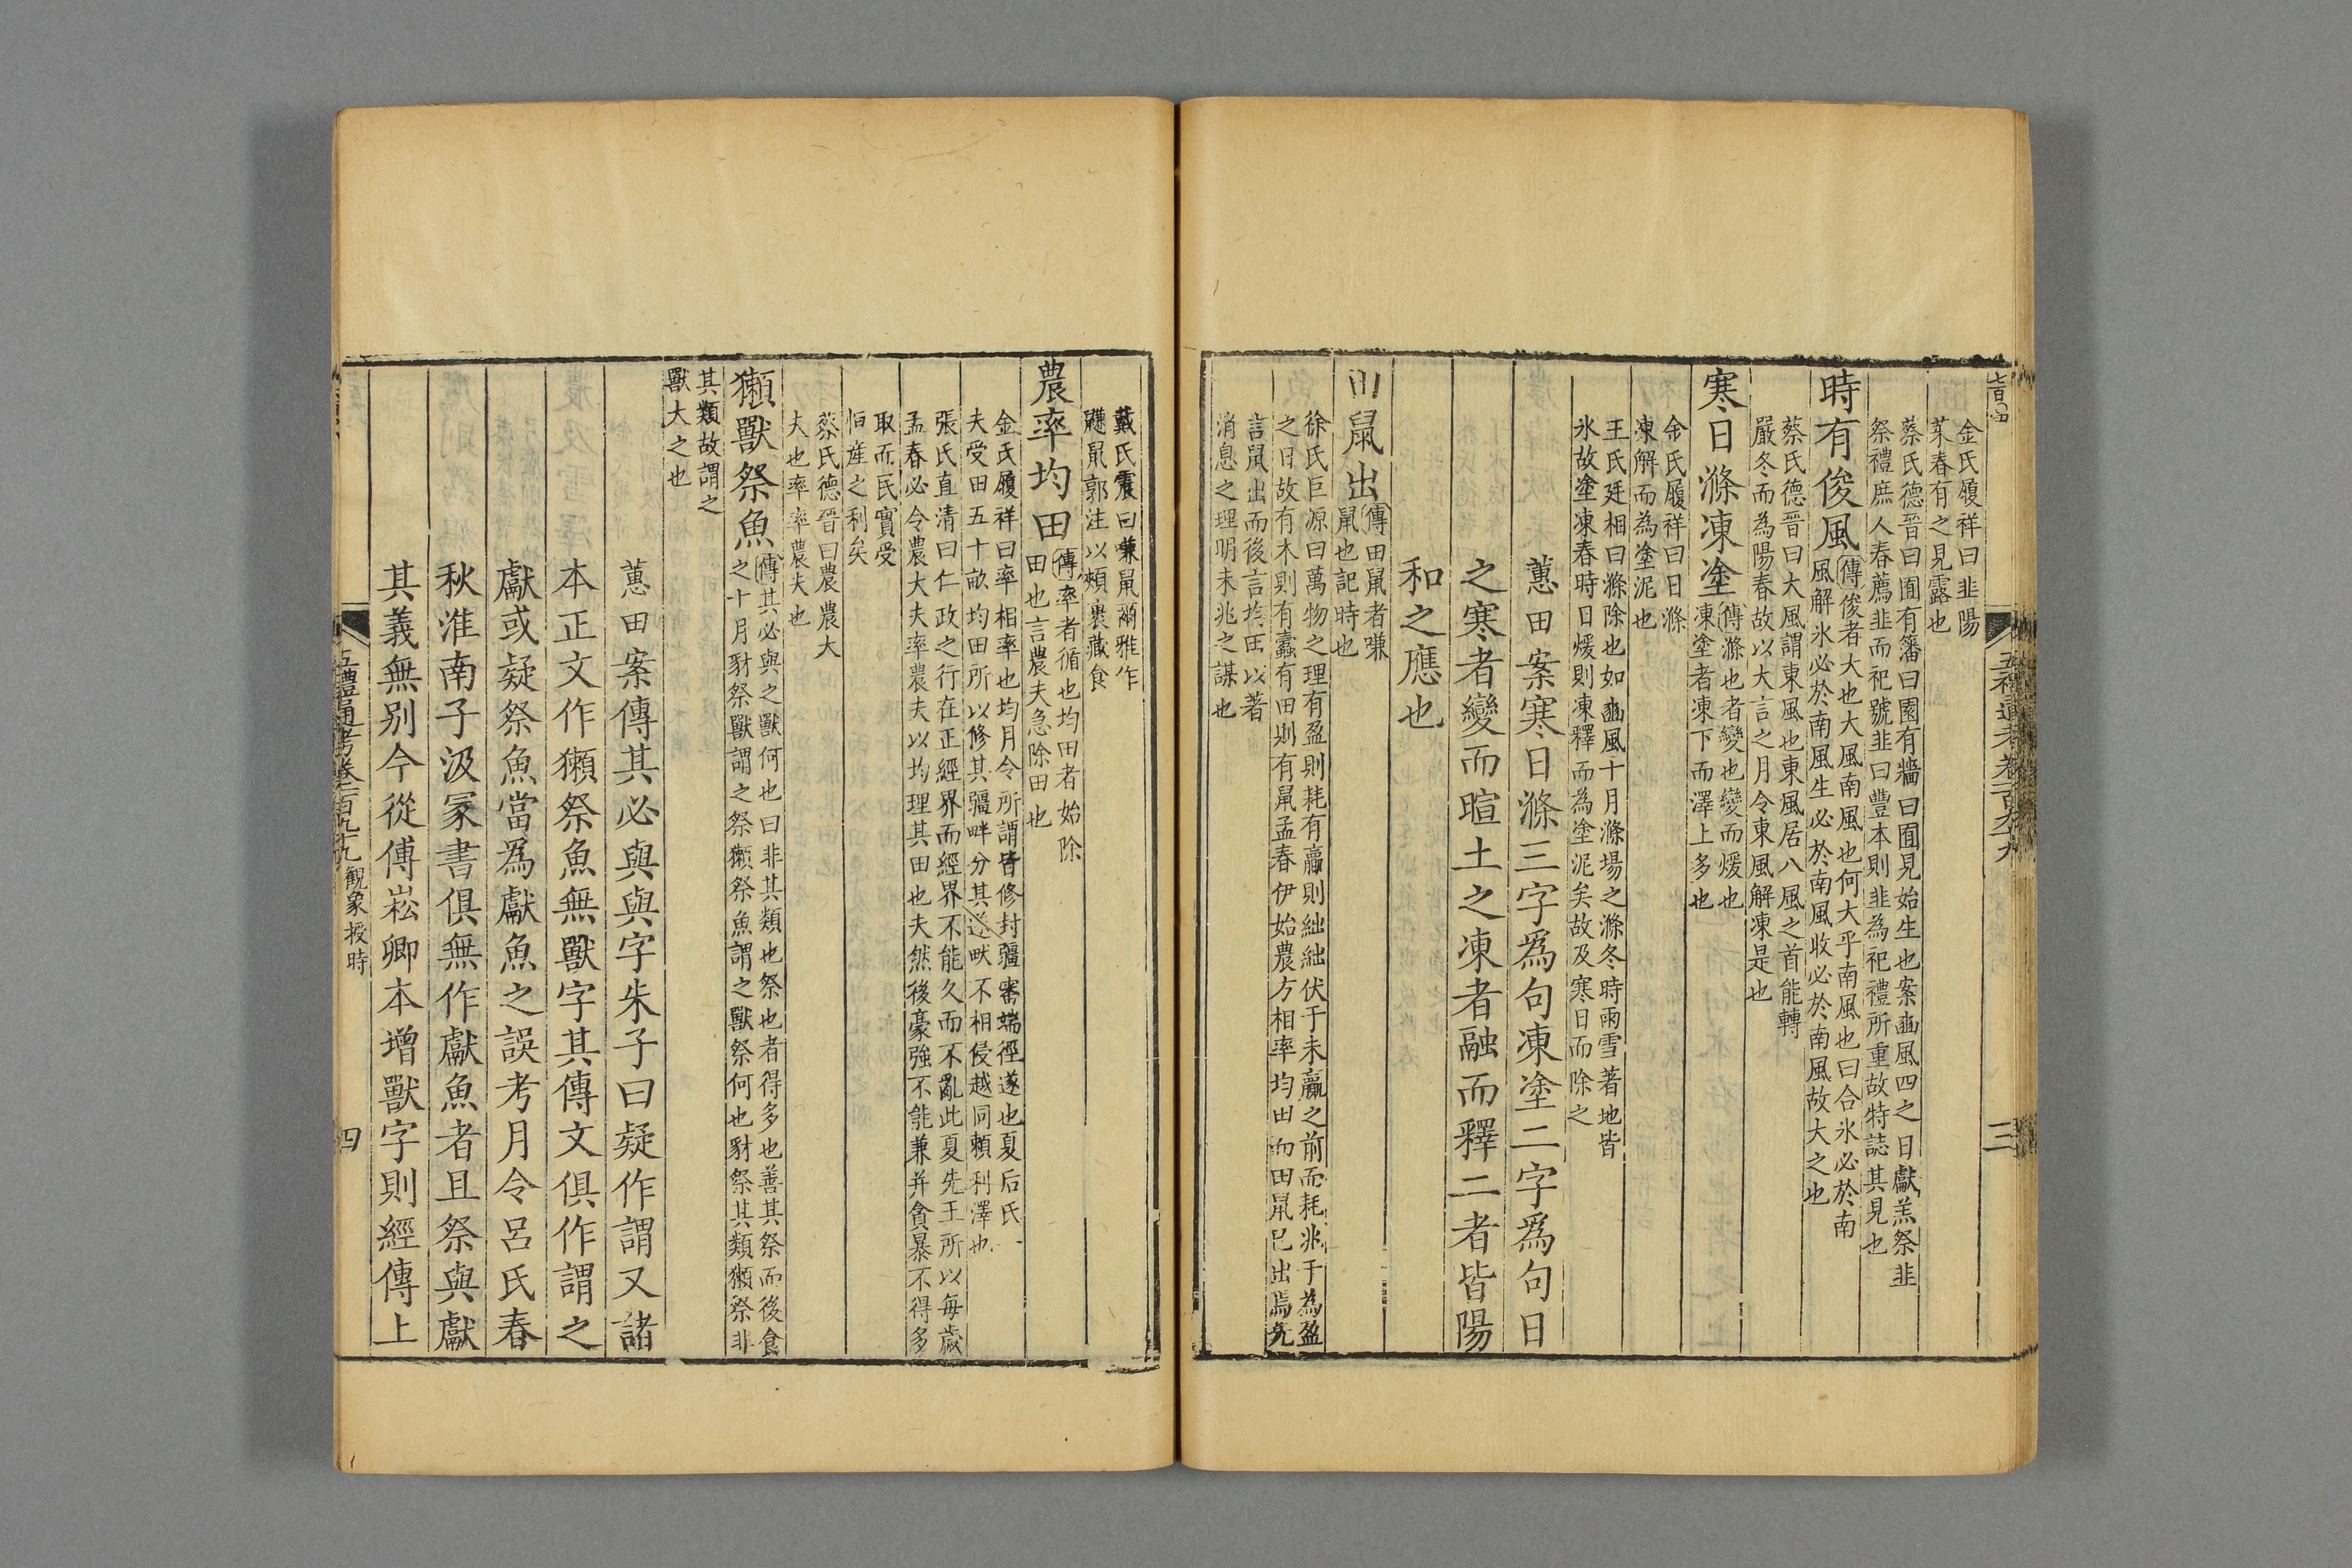 五禮通考卷一百九十九
三
金氏履祥曰韭陽
菜春有之見露也
蔡氏德晉曰囿有籓曰園有牆曰囿見始生也案豳風四之日獻羔祭韭
祭禮庶人春薦韭而祀號韭曰豐本則韭為祀禮所重故特誌其見也
時有俊風傳俊者大也大風南風也何大乎南風也曰合氷必於南
風解氷必於南風生必於南風收必於南風故大之也
蔡氏德晉曰大風謂東風也東風居八風之首能轉
嚴冬而為陽春故以大言之月令東風解凍是也
寒日滌凍塗傳滌也者變也變而煖也
凍塗者凍下而澤上多也
金氏履祥曰日滌
凍解而為塗泥也
王氏廷相曰滌除也如豳風十月滌場之滌冬時雨雪著地皆
氷故塗凍春時日煖則凍釋而為塗泥矣故及寒日而除之
蕙田案寒日滌三字爲句凍塗二字爲句日
之寒者變而暄土之凍者融而釋二者皆陽
和之應也
田鼠出傳田鼠者嗛
鼠也記時也
徐氏巨源曰萬物之理有盈則耗有贏則絀絀伏于未贏之前而耗兆于為盈
之日故有木則有蠹有田則有鼠孟春伊始農方相率均田而田鼠已出焉先
言鼠出而後言均田以著
消息之理明未兆之謀也
戴氏震曰嗛鼠爾雅作
鼸鼠郭注以頰裏藏食
農率均田傳率者循也均田者始除
田也言農夫急除田也
金氏履祥曰率相率也均月令所謂皆修封疆審端徑遂也夏后氏
夫受田五十畝均田所以修其疆畔分其遂畎不相侵越同賴利澤也
張氏直清曰仁政之行在正經界而經界不能久而不亂此夏先王所以每歲
孟春必令農大夫率農夫以均理其田也夫然後豪強不能兼并貪暴不得多
取而民實受
恒產之利矣
蔡氏德晉曰農農大
夫也率率農夫也
獺獸祭魚傳其必與之獸何也曰非其類也祭也者得多也善其祭而後食
之十月豺祭獸謂之祭獺祭魚謂之獸祭何也豺祭其類獺祭非
其類故謂之
獸大之也
蕙田案傳其必與與字朱子曰疑作謂又諸
本正文作獺祭魚無獸字其傳文俱作謂之
獻或疑祭魚當爲獻魚之誤考月令呂氏春
秋淮南子汲冢書俱無作獻魚者且祭與獻
其義無别今從傅崧卿本增獸字則經傳上
五禮通考卷一百九十九 觀象授時
四